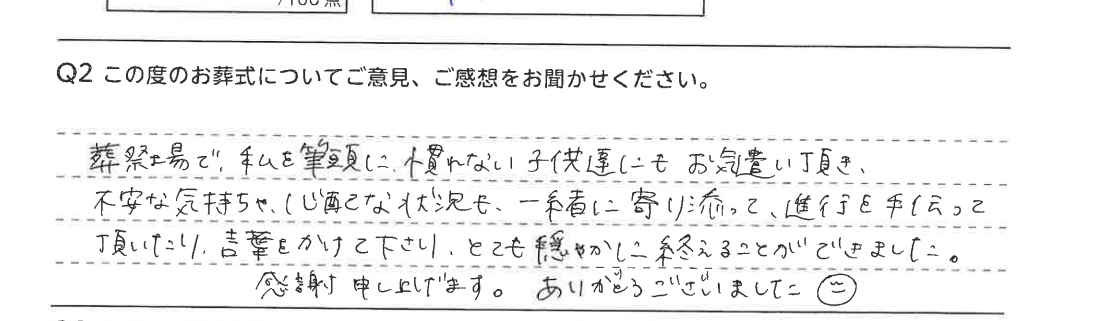 /100点
Q2 この度のお葬式についてご意見、ご感想をお聞かせください。
葬祭場で、私を筆頭に、慣れない子供達にもお気遣い頂き、
不安な気持ちや、心配な状況も、一緒に寄り添って、進行を手伝って
頂いたり、言葉をかけて下さり、とても穏やかに終えることができました。
感謝申し上げます。ありがとうございました